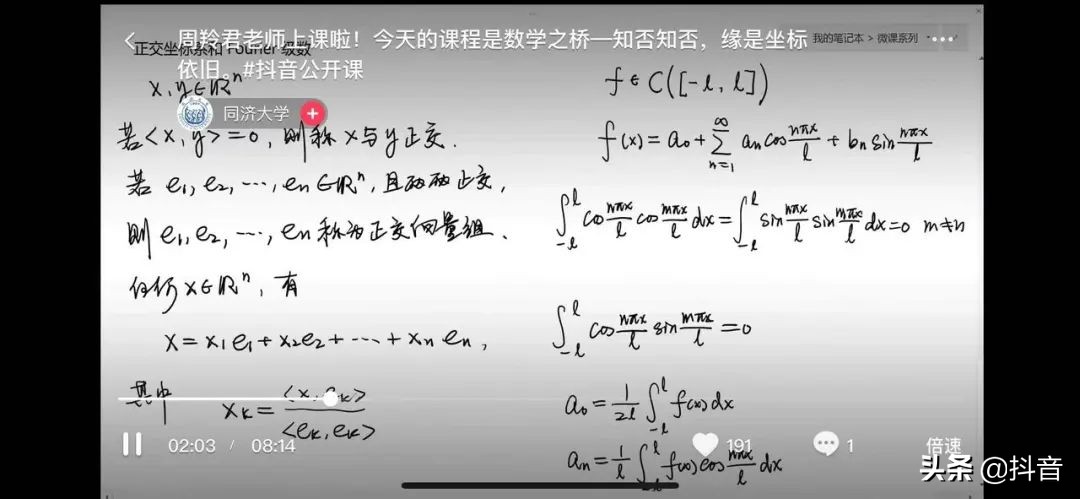 正交坐标系和 Fourier 级数
周羚君老师上课啦！今天的课程是数学之桥—知否知否，缘是坐标
依旧。#抖音公开课
我的笔记本 > 微课系列
同济大学
x, y∈ℝⁿ
若<x, y>=0, 则称 x 与 y 正交.
若 e₁, e₂, ⋯, eₙ∈ℝⁿ, 且两两正交,
则 e₁, e₂, ⋯, eₙ 称为正交向量组.
任何 x∈ℝⁿ, 有
x = x₁e₁ + x₂e₂ + ⋯ + xₙeₙ,
其中 xₖ = <x, eₖ> / <eₖ, eₖ>
f ∈ C([-l, l])
f(x) = a₀ + ∑_{n=1}^{∞} aₙ cos nπx/l + bₙ sin nπx/l
∫_{-l}^{l} cos nπx/l cos mπx/l dx = ∫_{-l}^{l} sin nπx/l sin mπx/l dx = 0 m≠n
∫_{-l}^{l} cos nπx/l sin mπx/l = 0
a₀ = 1/2l ∫_{-l}^{l} f(x) dx
aₙ = 1/l ∫_{-l}^{l} f(x) cos nπx/l dx
02:03 / 08:14
191
1
倍速
头条 @抖音